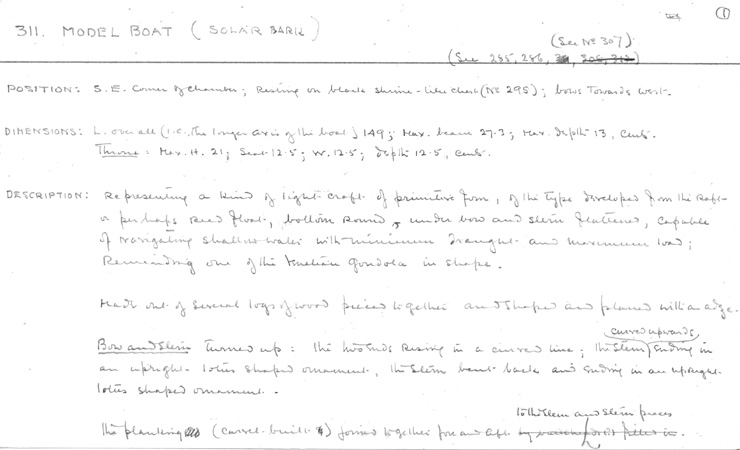 ①
311. MODEL BOAT (SOLAR BARK)
(See Nº 307)
(See 285, 286,
POSITION: S.E. Corner of chamber; resting on black shrine-like chest (Nº 295); bows towards west.
DIMENSIONS: L. over all (i.e. the longer axis of the boat) 149; Max. beam 27.3; Max. depth 13, cents.
Throne: Max. H. 21; Seat 12.5; W. 12.5; depth 12.5, cents.
DESCRIPTION: Representing a kind of light craft of primitive form, of the type developed from the Raft
or perhaps Reed float, bottom round, under bow and stern flattened, capable
of navigating shallow water with minimum draught and maximum load;
Reminding one of the Venetian gondola in shape.
Made out of several logs of wood pieced together and shaped and planed with an adze.
curved upwards
Bow and Stern turned up: the two ends rising in a curved line; the stem ending in
an upright lotus shaped ornament, the stern bent back and ending in an upright
lotus shaped ornament.
to the stem and stern pieces
The planking (carvel-built) joined together fore and aft